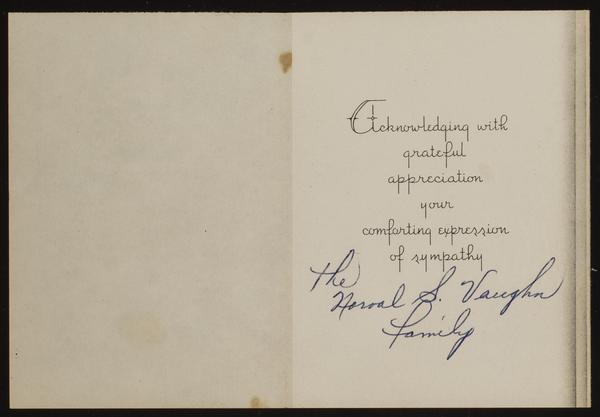 Acknowledging with
grateful
appreciation
your
comforting expression
of sympathy
The
Norval S. Vaughn
family